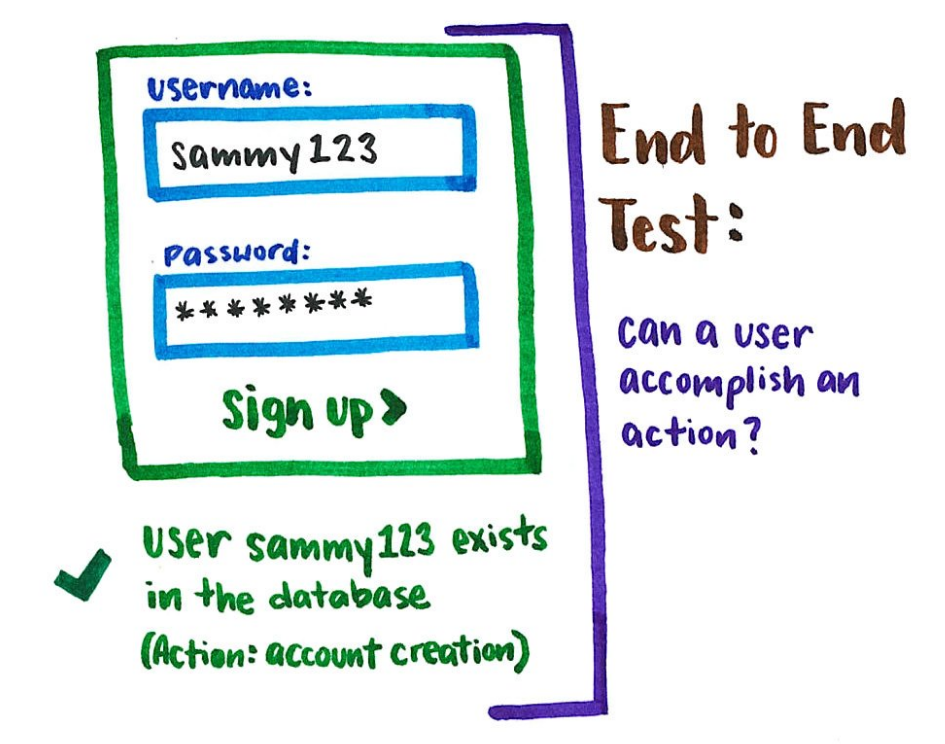 username:
sammy123
password:
********
Sign up >
user sammy123 exists
in the database
(Action: account creation)
End to End
Test:
can a user
accomplish an
action?